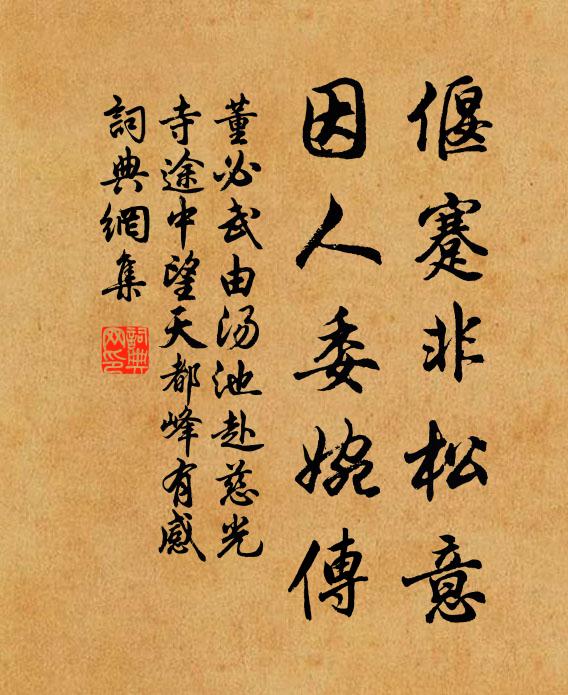 偃蹇非松意
因人委婉傳
董必武由汤池赴慈光
寺途中望天都峰有感
詞典網集
詞典
网印